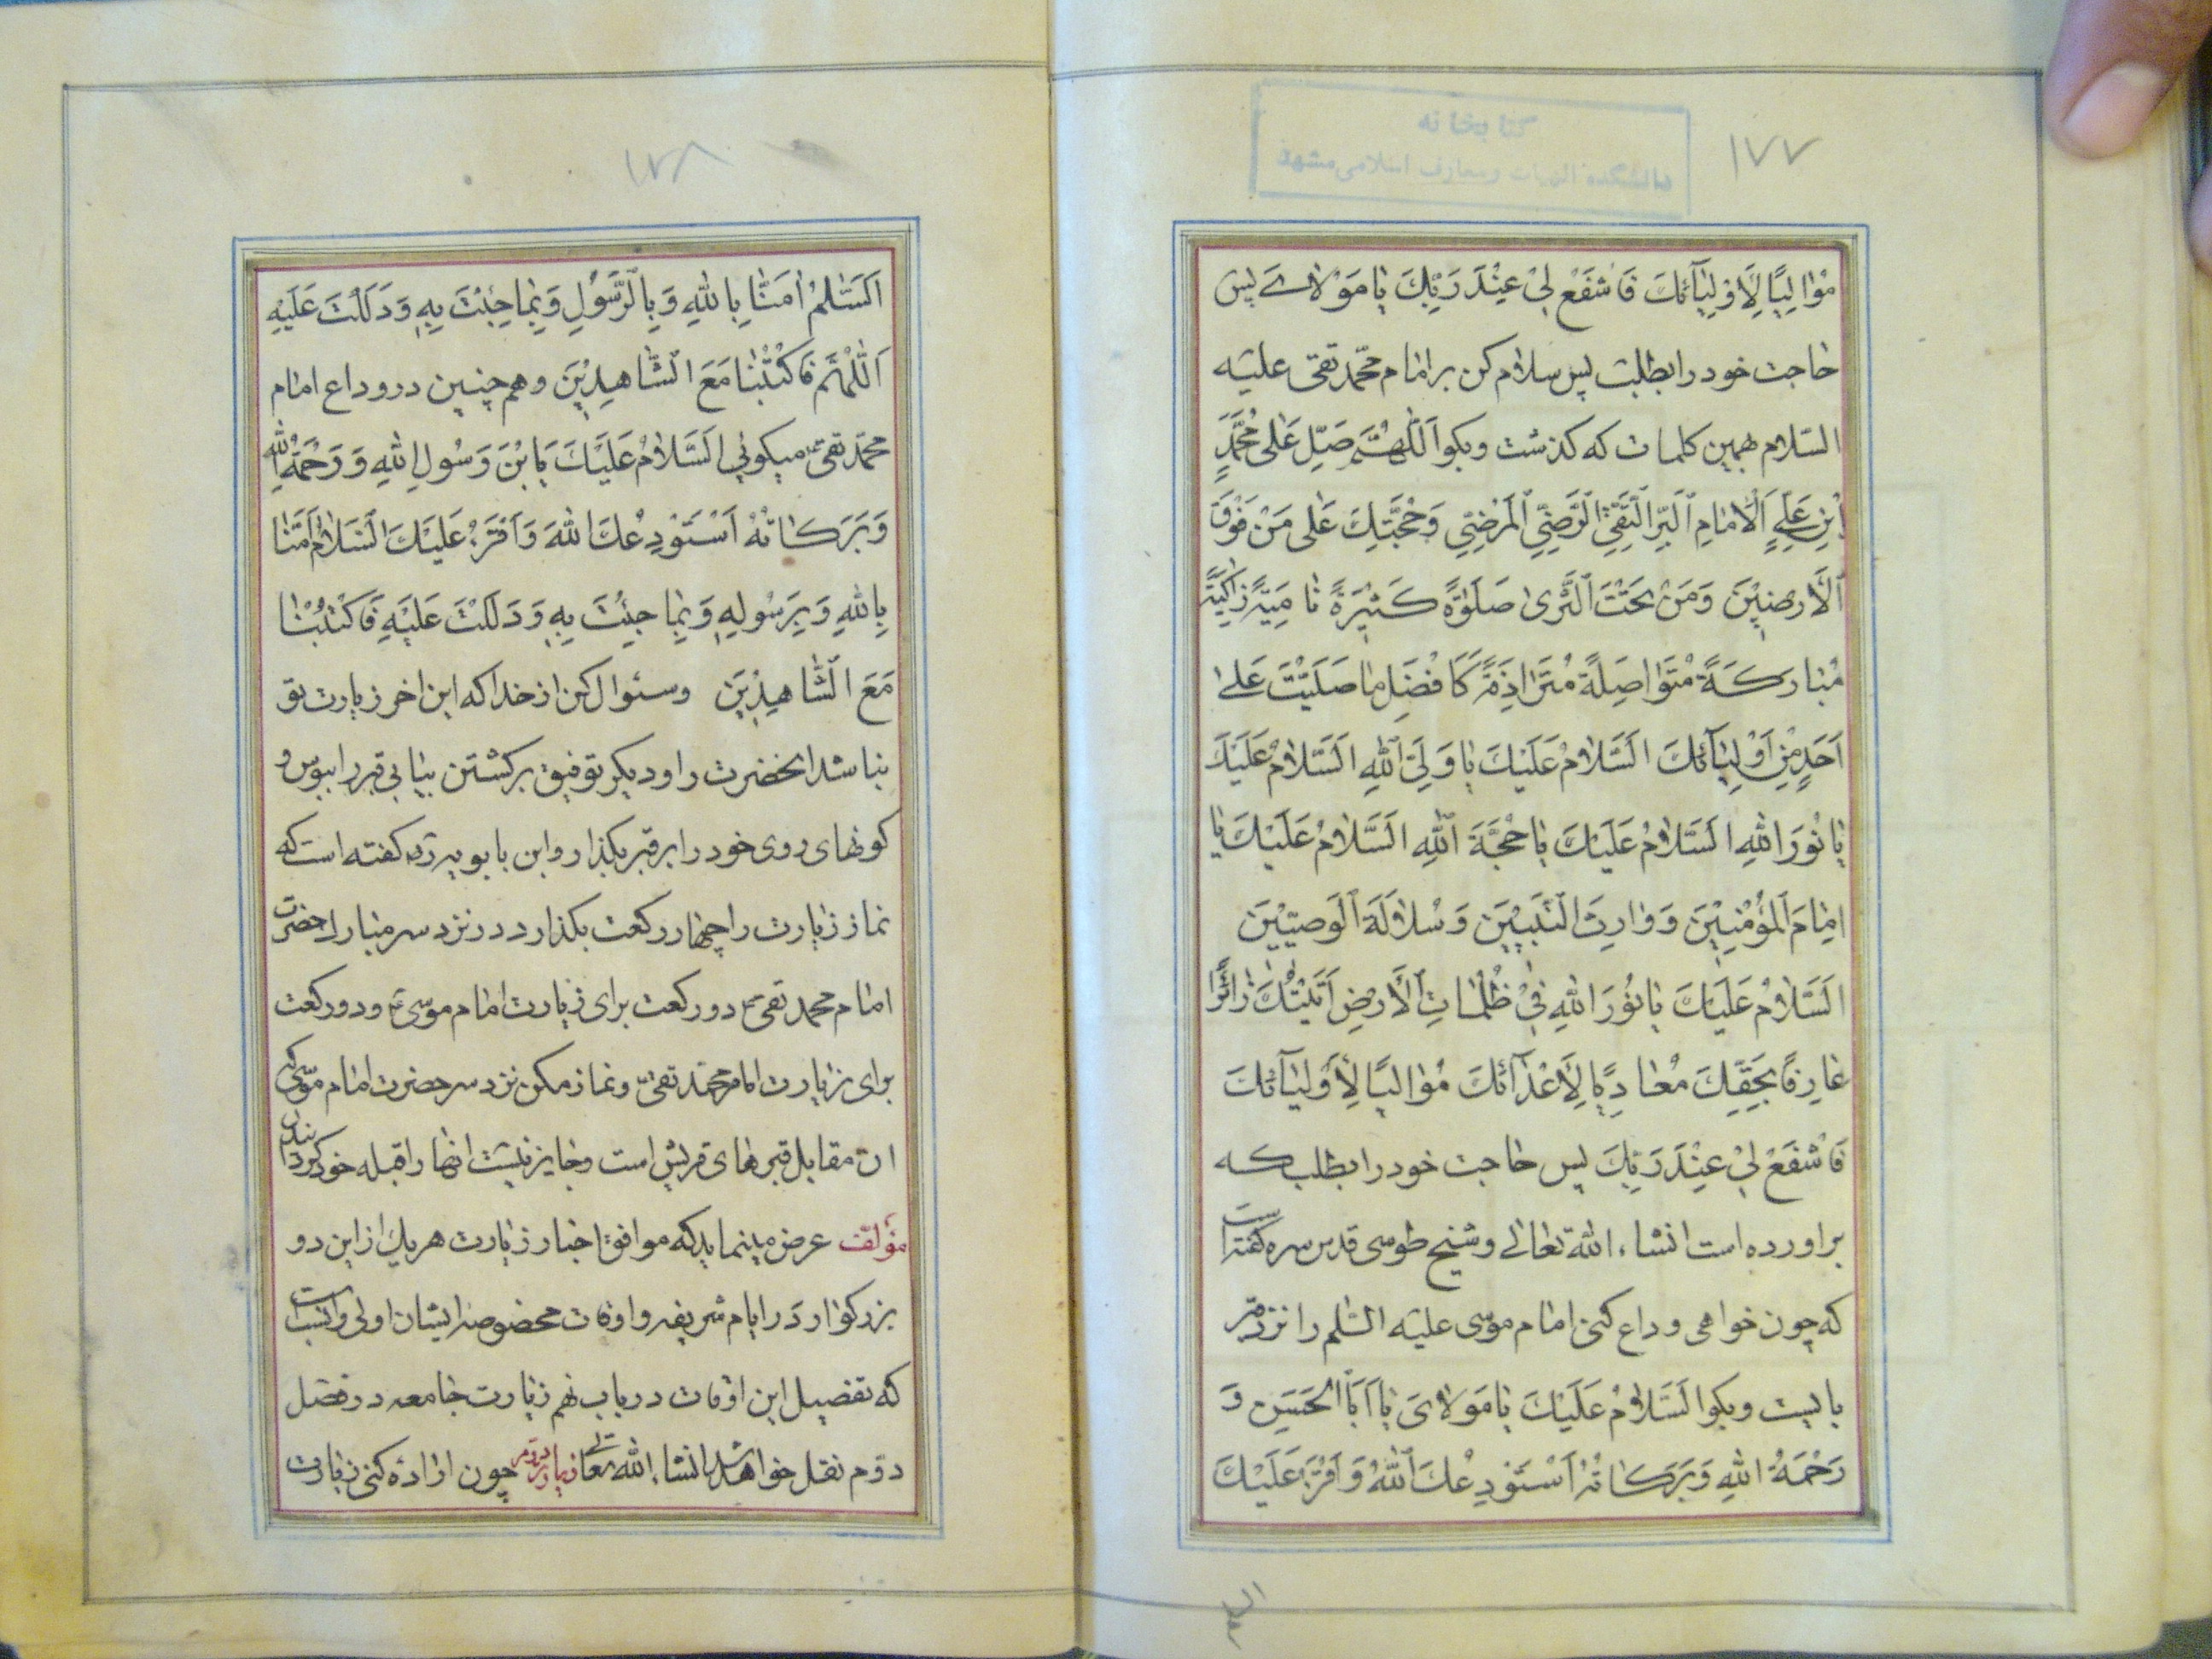 ۱۷۷
کتابخانه
دانشکده الهیات و معارف اسلامی مشهد
مُوٰالِیًا لِاَوْلِیٰآئِكَ فَاشْفَعْ لِیْ عِنْدَ رَبِّكَ یٰا مَوْلاٰیَ پس
حاجت خود را بطلب پس سلام کن بر امام محمّد تقی علیه
السّلام بهمین کلمات که کذشت و بکو اَللّٰهُمَّ صَلِّ عَلٰی مُحَمَّدٍ
بْنِ عَلِیٍّ اَلْاِمٰامِ اَلْبَرِّ الْتَّقِیِّ الْرَّضِیِّ اَلْمَرْضِیِّ وَحُجَّتِكَ عَلٰی مَنْ فَوْقَ
اَلْاَرَضِیْنَ وَمَنْ تَحْتَ اَلثَّرٰی صَلٰوةً کَثِیْرَةً نٰامِیَةً زٰاکِیَةً
مُبٰارَکَةً مُتَوٰاصِلَةً مُتَرٰادِفَةً کَاَفْضَلِ مٰا صَلَّیْتَ عَلیٰ
اَحَدٍ مِنْ اَوْلِیٰآئِكَ اَلسَّلاٰمُ عَلَیْكَ یٰا وَلِیَّ اللّٰهِ اَلسَّلاٰمُ عَلَیْكَ
یٰا نُوْرَ اللّٰهِ اَلسَّلاٰمُ عَلَیْكَ یٰا حُجَّةَ اللّٰهِ اَلسَّلاٰمُ عَلَیْكَ یٰا
اِمٰامَ اَلْمُؤْمِنِیْنَ وَوٰارِثَ الْنَّبِیِّیْنَ وَسُلاٰلَةَ اَلْوَصِیِّیْنَ
اَلسَّلاٰمُ عَلَیْكَ یٰا نُوْرَ اللّٰهِ فِیْ ظُلُمٰاتِ اَلْاَرْضِ اَتَیْتُكَ زٰائِرًا
عٰارِفًا بِحَقِّكَ مُعٰادِیًا لِاَعْدٰآئِكَ مُوٰالِیًا لِاَوْلِیٰآئِكَ
فَاشْفَعْ لِیْ عِنْدَ رَبِّكَ پس حاجت خود را بطلب که
براورده است انشاء الله تعالی و شیخ طوسی قدس سره کفته است
که چون خواهی وداع کنی امام موسی علیه السّلم را نزد قبر
بایست و بکو اَلسَّلاٰمُ عَلَیْكَ یٰا مَوْلاٰیَ یٰا اَبَا الْحَسَنِ وَ
رَحْمَةُ اللّٰهِ وَبَرَکٰاتُهُ اَسْتَوْدِعُكَ اللّٰهَ وَاَقْرَءُ عَلَیْكَ
۱۷۸
اَلسَّلٰمُ اٰمَنّٰا بِاللّٰهِ وَبِالْرَّسُوْلِ وَبِمٰا جِئْتَ بِهِ وَدَلَلْتَ عَلَیْهِ
اَللّٰهُمَّ فَاکْتُبْنٰا مَعَ الشّٰاهِدِیْنَ و هم چنین در وداع امام
محمّد تقی ع میکوئی اَلسَّلاٰمُ عَلَیْكَ یَابْنَ رَسُوْلِ اللّٰهِ وَرَحْمَةُ اللّٰهِ
وَبَرَکٰاتُهُ اَسْتَوْدِعُكَ اللّٰهَ وَاَقْرَءُ عَلَیْكَ السَّلاٰمُ اٰمَنّٰا
بِاللّٰهِ وَبِرَسُوْلِهِ وَبِمٰا جِئْتَ بِهِ وَدَلَلْتَ عَلَیْهِ فَاکْتُبْنٰا
مَعَ الشّٰاهِدِیْنَ و سئوال کن از خدا که این اخر زیارت تو
نباشد انحضرت را و دیکر توفیق برکشتن بیابی قبر را ببوس و
کونهای روی خود را بر قبر بکذار و ابن بابویه ره کفته است که
نماز زیارت را چهار رکعت بکذارد در نزد سر مبارک حضرت
امام محمد تقی ع دو رکعت برای زیارت امام موسی ع و دو رکعت
برای زیارت امام محمّد تقی ع و نماز مکن نزد سر حضرت امام موسی که
ان مقابل قبرهای قریش است و جایز نیست انها را قبله خود کردانیدن
مؤلف عرض مینماید که موافق اخبار زیارت هر یك از این دو
بزرکوار در ایام شریفه و اوقات مخصوصه ایشان اولی و انسب است
که تفصیل این اوقات در باب نهم زیارت جامعه در فصل
دوّم نقل خواهد شد انشاء الله تعالی زیارت دوم چون اراده کنی زیارت